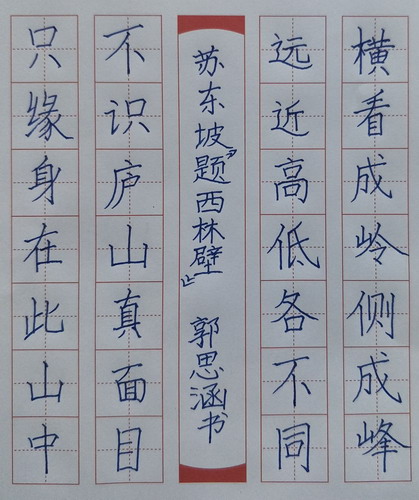 横看成岭侧成峰
远近高低各不同
苏东坡《题西林壁》 郭思涵书
不识庐山真面目
只缘身在此山中